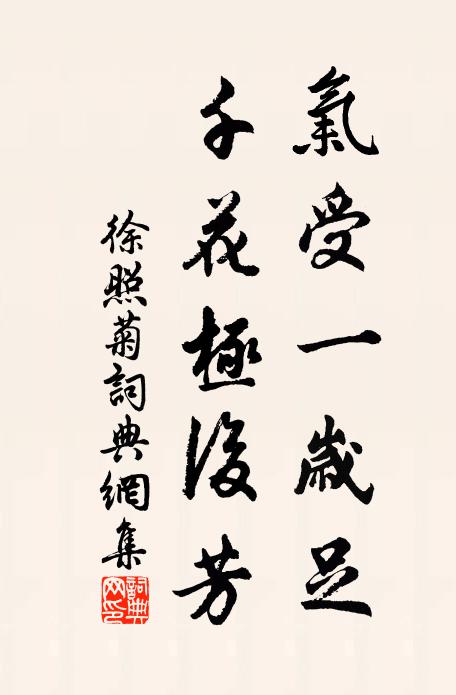 氣受一歲足
千花極後芳
徐照菊詞典網集
詞典網印